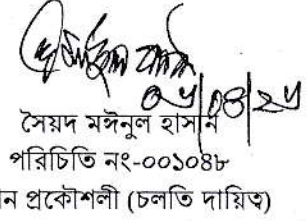 ০৮/০৪/২৫
সৈয়দ মঈনুল হাসান
পরিচিতি নং-০০১০৪৮
ন প্রকৌশলী (চলতি দায়িত্ব)